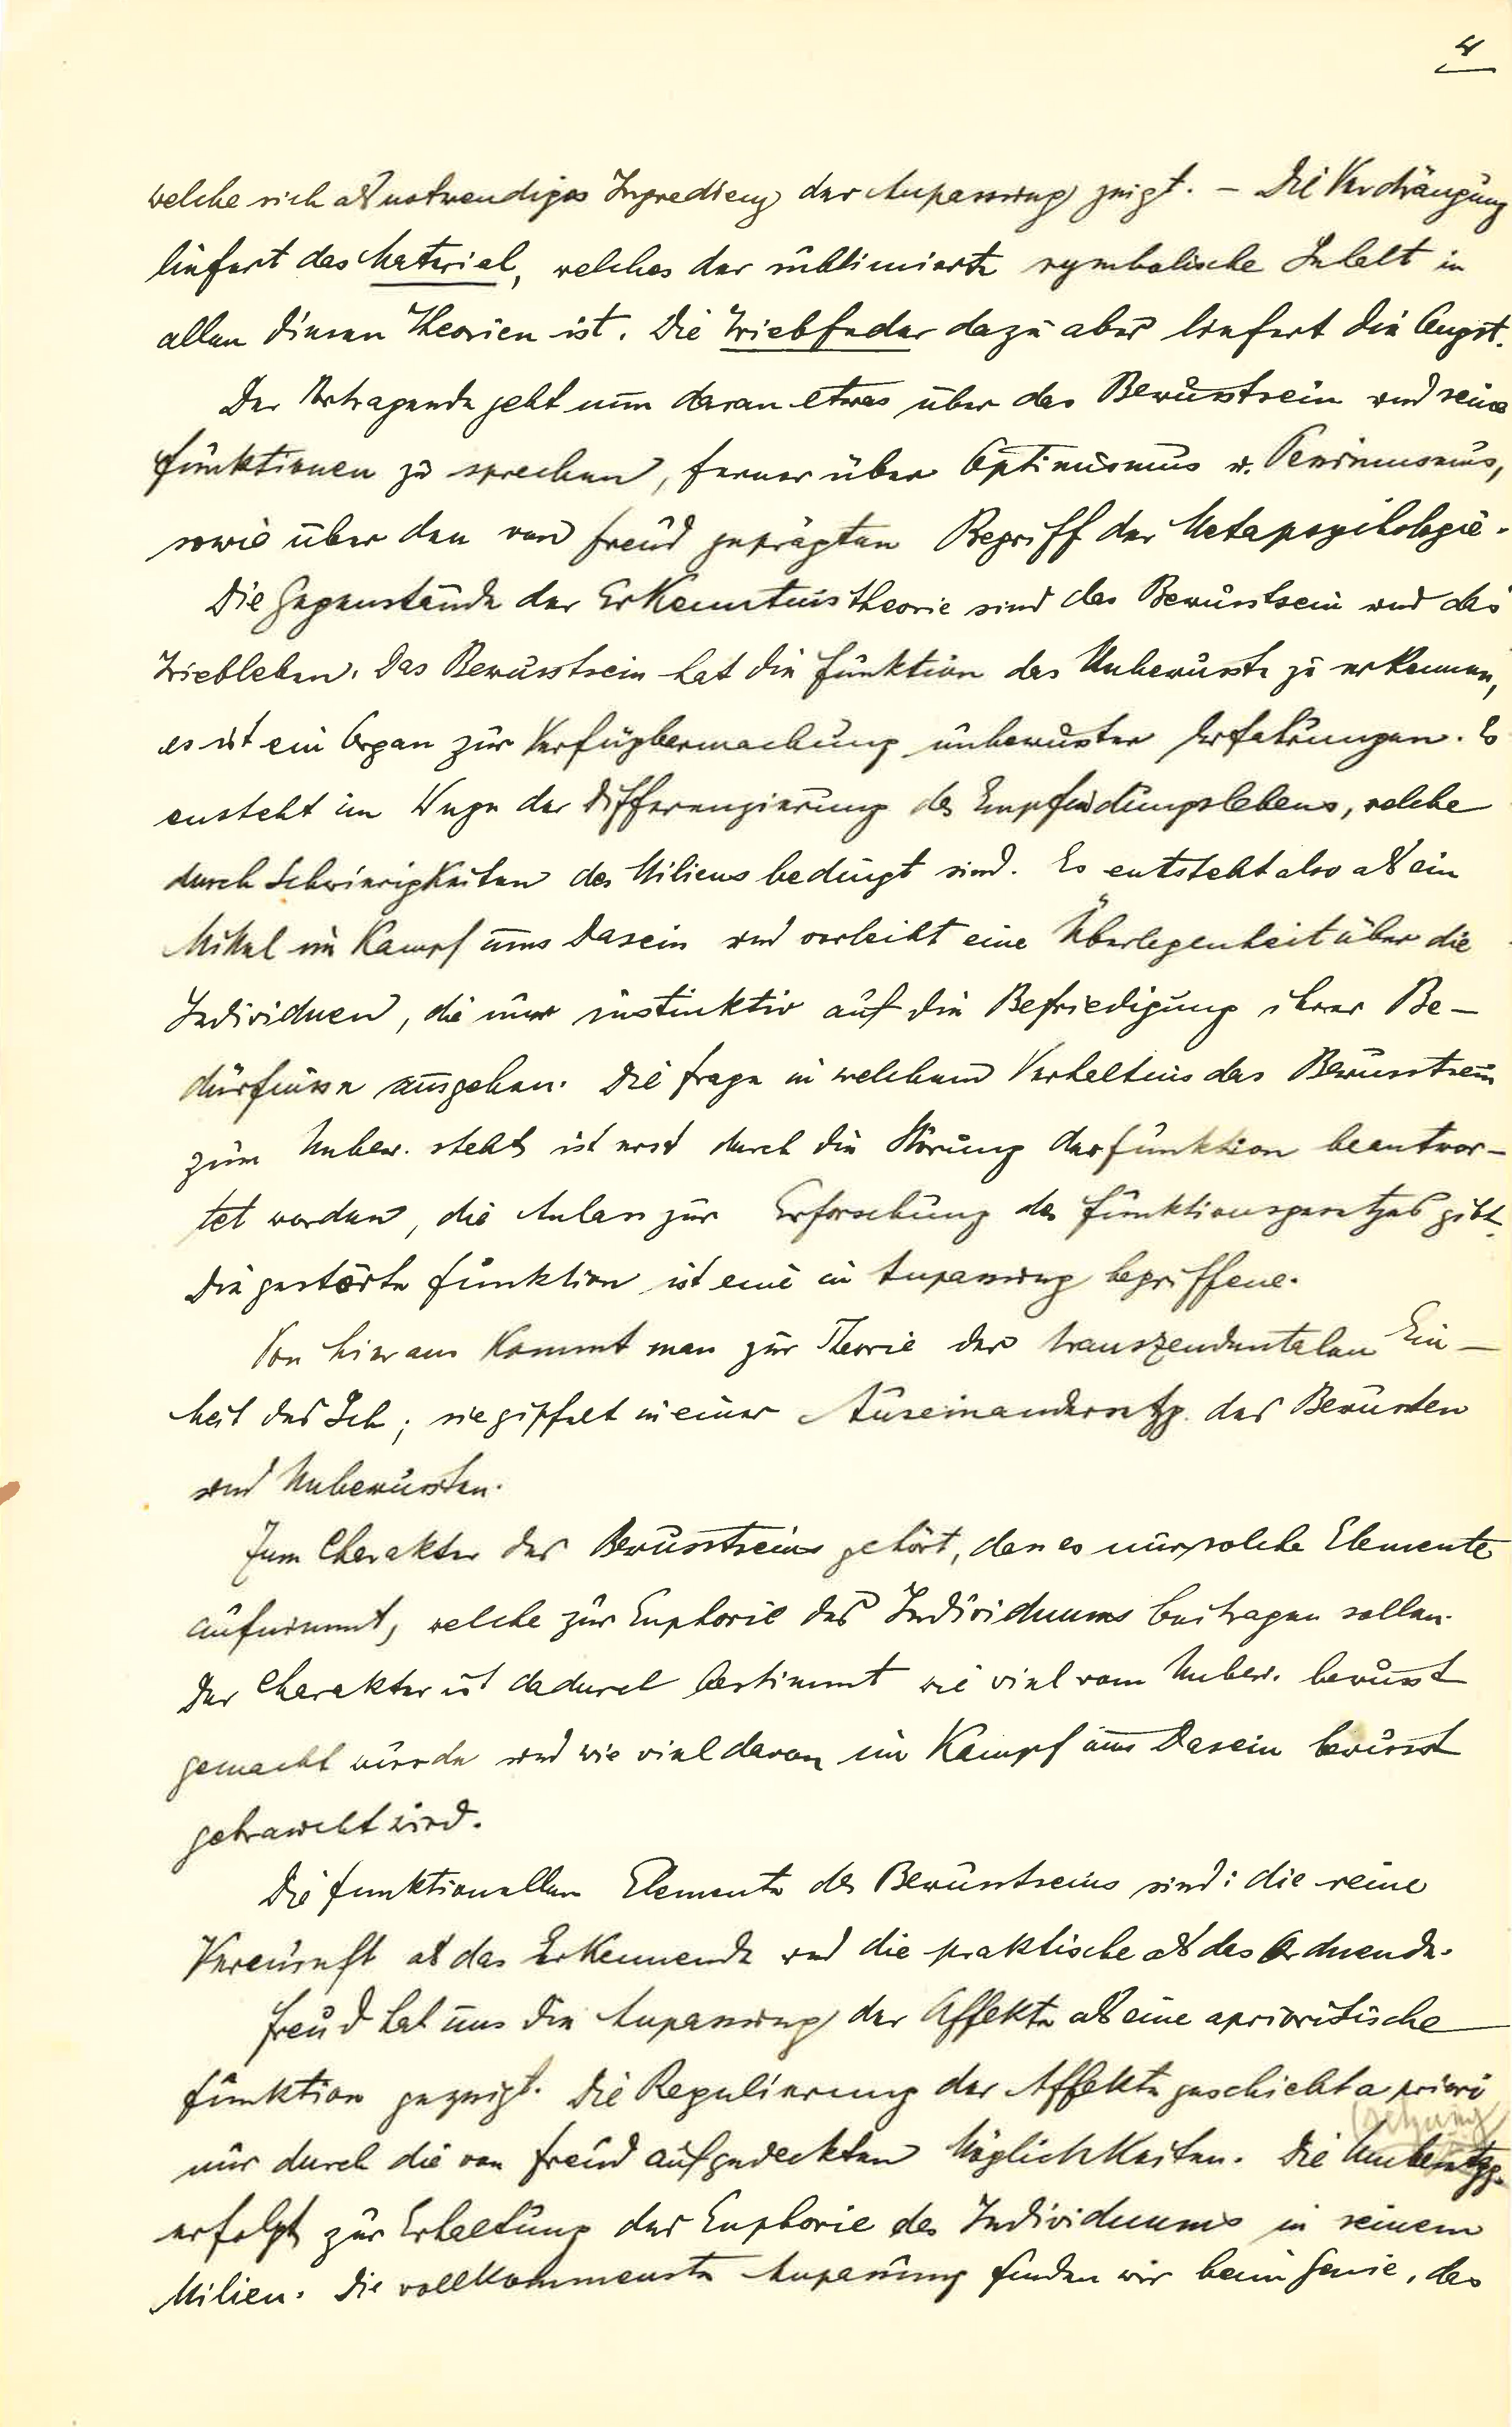 4
welche sich als notwendiges Ingredienz der Anpassung zeigt. – Die Verdrängung
liefert das Material, welches der sublimierte symbolische Inhalt in
allen diesen Theorien ist. Die Triebfeder dazu aber liefert die Angst.
Der Vortragende geht nun daran etwas über das Bewusstsein und seine
Funktionen zu sprechen, ferner über Optimismus u. Pessimismus,
sowie über den von Freud geprägten Begriff der Metapsychologie.
Die Gegenstände der Erkenntnistheorie sind das Bewusstsein und das
Triebleben. Das Bewusstsein hat die Funktion das Unbewusste zu erkennen,
es ist ein Organ zur Verfügbarmachung unbewusster Erfahrungen. Es
ensteht im Wege der Differenzierung des Empfindungslebens, welche
durch Schwierigkeiten des Milieus bedingt sind. Es entsteht also als ein
Mittel im Kampf ums Dasein und verleiht eine Überlegenheit über die
Individuen, die nur instinktiv auf die Befriedigung ihrer Be-
dürfnisse ausgehen. Die Frage in welchem Verhältnis das Bewusstsein
zum Unbew. steht ist erst durch die Störung der Funktion beantwor-
tet worden, die Anlass zur Erforschung des Funktionsgesetzes gibt.
Die gestörte Funktion ist eine in Anpassung begriffene.
Von hier aus kommt man zur Theorie der transzendentalen Ein-
heit des Ich; sie gipfelt in einer Auseinandersetzg. des Bewussten
und Unbewussten.
Zum Charakter des Bewusstseins gehört, dass es nur solche Elemente
aufnimmt, welche zur Euphorie des Individuums beitragen sollen.
Der Charakter ist dadurch bestimmt wie viel vom Unbew. bewusst
gemacht wurde und wie viel davon im Kampf ums Dasein bewusst
gebraucht wird.
Die funktionellen Elemente des Bewusstseins sind: die reine
Vernunft als das Erkennende und die praktische als das Ordnende.
Freud hat uns die Anpassung der Affekte als eine aprioristische
Funktion gezeigt. Die Regulierung der Affekte geschieht a priori
nur durch die von Freud aufgedeckten Möglichkeiten. Die
(setzung
erfolgt zur Erhaltung der Euphorie des Individuums in seinem
Milieu. Die vollkommenste Anpassung finden wir beim Genie, das